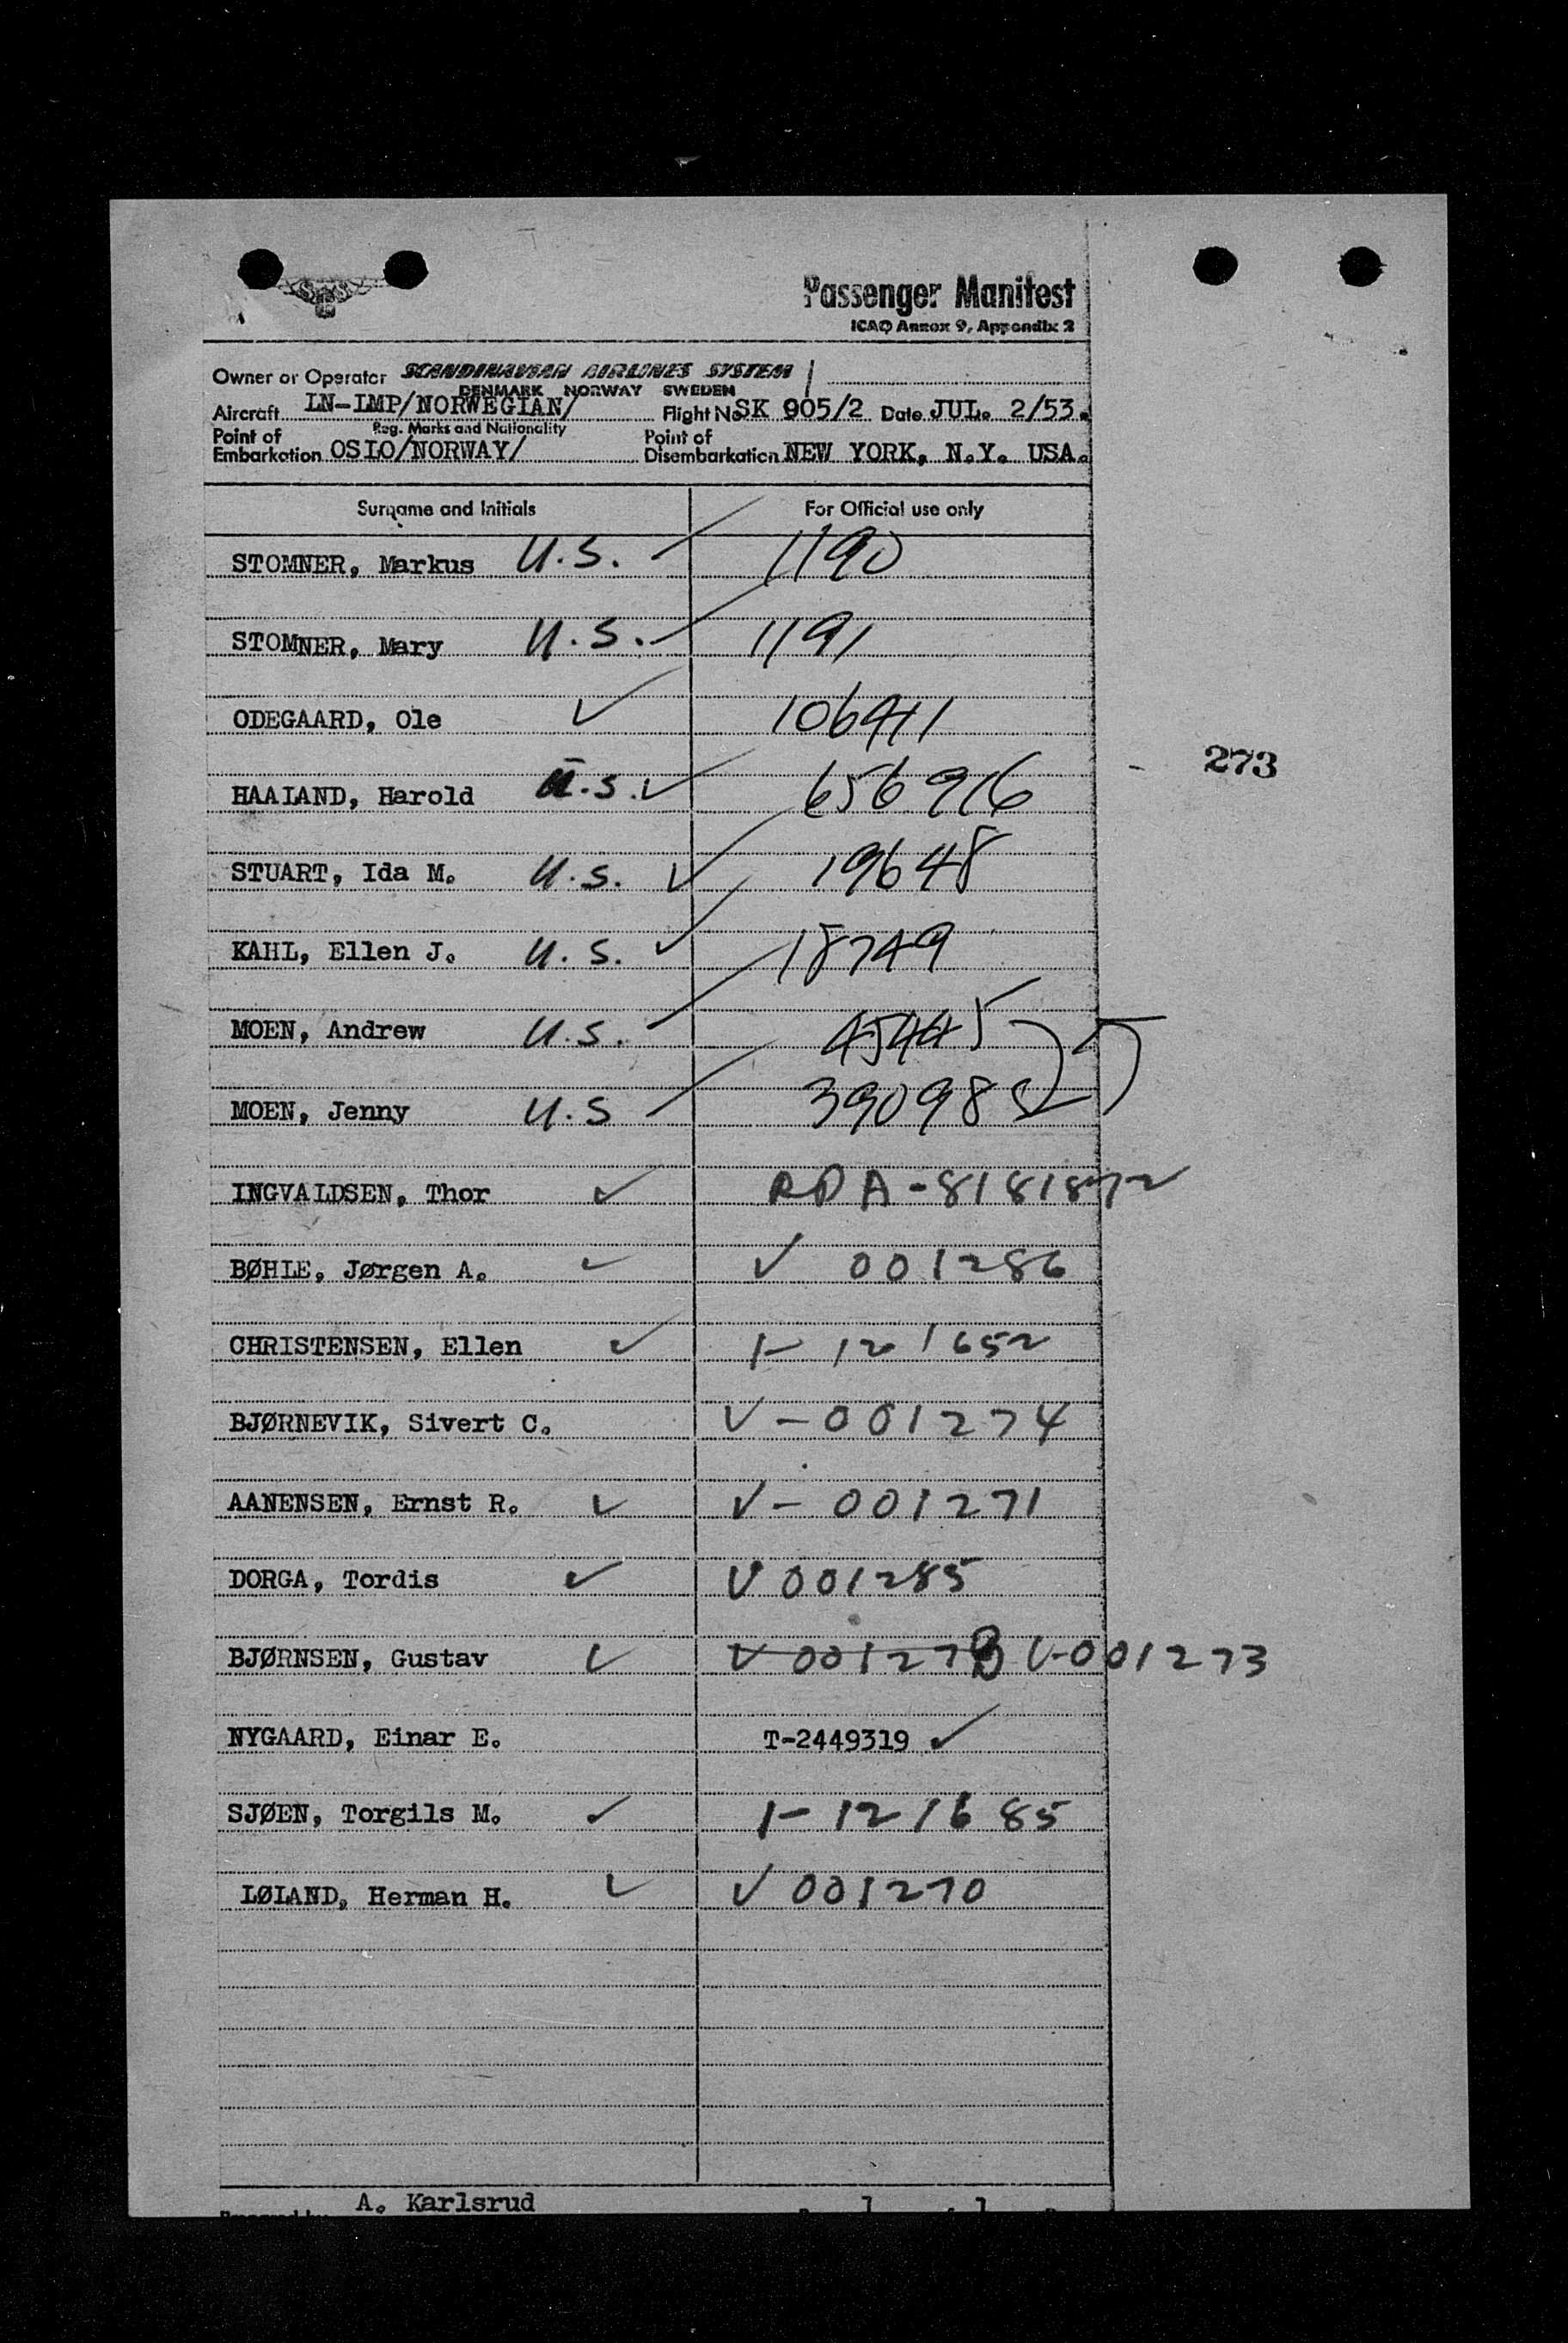 Passenger Manifest
ICAO Annex 9, Appendix 2
Owner or Operator SCANDINAVIAN AIRLINES SYSTEM
DENMARK NORWAY SWEDEN
Aircraft LN-LMP/NORWEGIAN/ Flight No SK 905/2 Date JUL. 2/53.
Reg. Marks and Nationality
Point of Embarkation OSLO/NORWAY/ Point of Disembarkation NEW YORK, N.Y. USA.
Surname and Initials For Official use only
STOMNER, Markus U.S. 1190
STOMNER, Mary U.S. 1191
ODEGAARD, Ole ✓ 106941
273
HAALAND, Harold U.S. ✓ 656916
STUART, Ida M. U.S. ✓ 19648
KAHL, Ellen J. U.S. ✓ 18749
MOEN, Andrew U.S. 45445
MOEN, Jenny U.S 390985
INGVALDSEN, Thor ✓ A-8181872
BØHLE, Jørgen A. ✓ V 001286
CHRISTENSEN, Ellen ✓ 1-121652
BJØRNEVIK, Sivert C. V-001274
AANENSEN, Ernst R. ✓ V-001271
DORGA, Tordis ✓ V 001285
BJØRNSEN, Gustav ✓ V-001273
NYGAARD, Einar E. T-2449319 ✓
SJØEN, Torgils M. ✓ 1-121685
LØLAND, Herman H. ✓ V 001270
A. Karlsrud